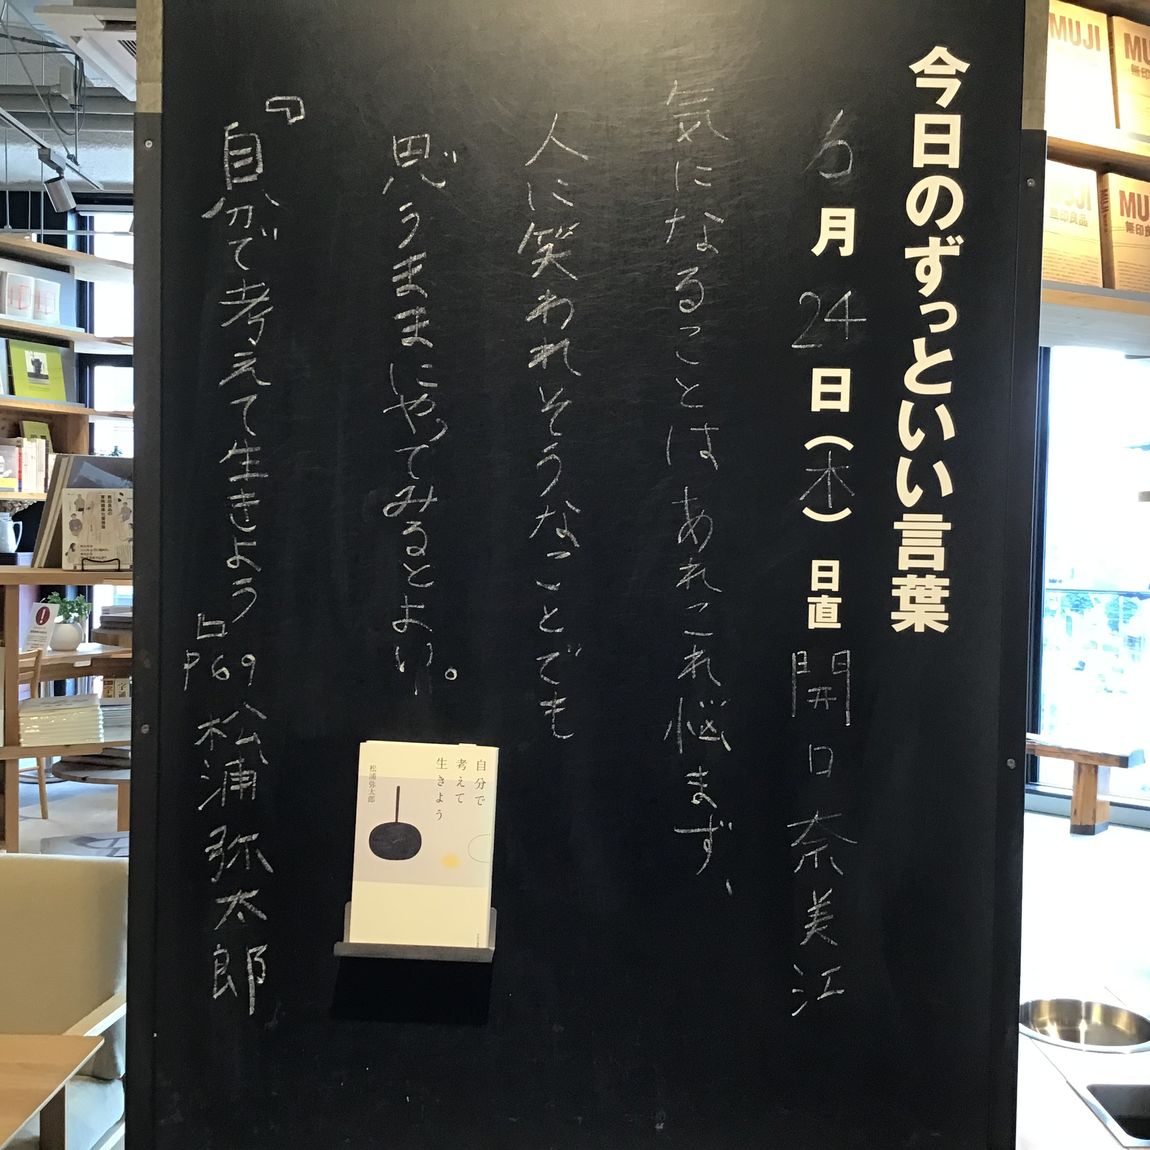 今日のずっといい言葉
6月24日(木) 日直 開口奈美江
気になることは あれこれ悩まず、
人に笑われそうなことでも
思うままにやってみるとよい。
『自分で考えて生きよう』
P69 松浦弥太郎
自分で
考えて
生きよう
松浦弥太郎
MUJI
MUJI
無印良品
MUJI
無印良品